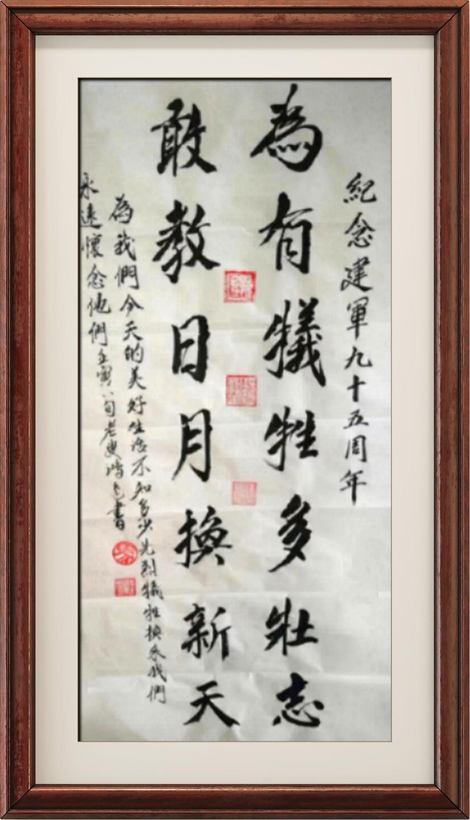 紀念建軍九十五周年
為有犧牲多壯志
敢教日月換新天
為我們今天的美好生活不知多少先烈犧牲換來我們
永遠懷念他們壬寅八旬老叟 書